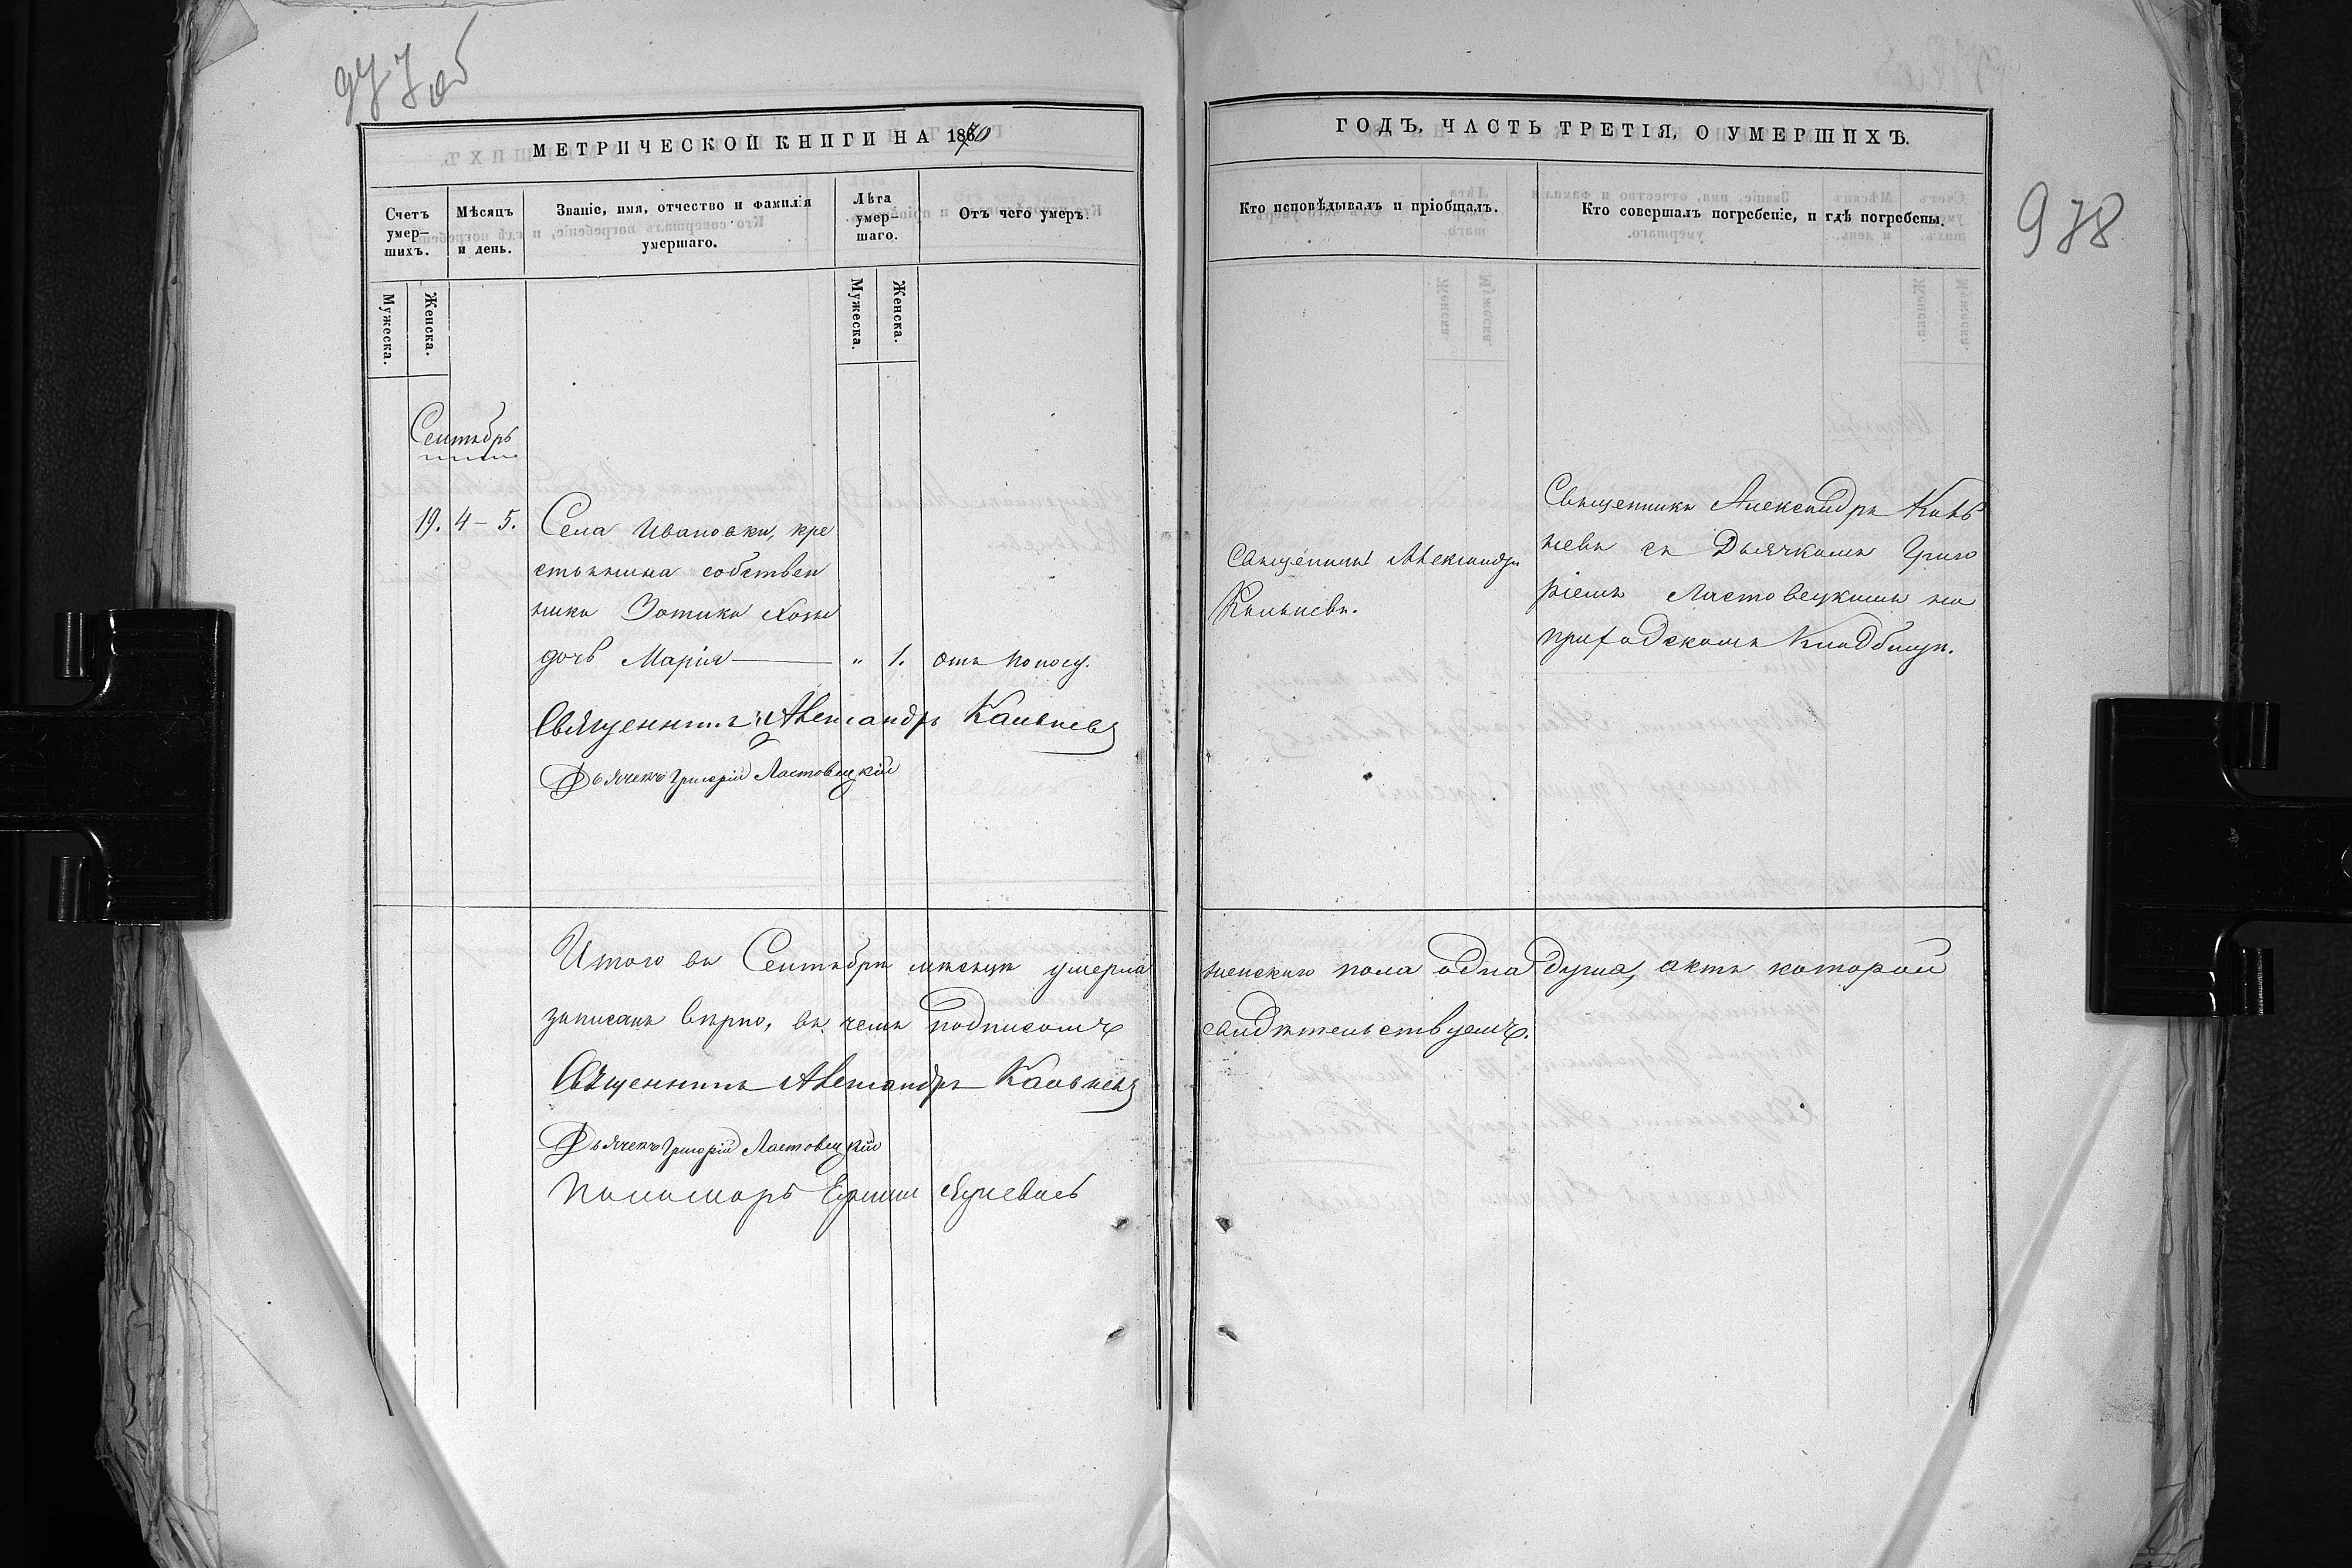 977 об
МЕТРИЧЕСКОЙ КНИГИ НА 1870
Счетъ умер-шихъ.
Мѣсяцъ и день.
Званіе, имя, отчество и фамилія умершаго.
Лѣта умер-шаго.
Отъ чего умеръ.
Мужеска.
Женска.
Мужеска.
Женска.
Сентябрь
19. 4 – 5. Села Ивановки, кре
стьянина собствен
ника Зотика
дочь Марія — " 1. отъ поносу.
Священникъ Александръ Кальневъ
Дьячекъ Григорій Ластовецкій
Итого въ Сентябрѣ мѣсяцѣ умерла
записанъ вѣрно, въ чемъ подписомъ
Священникъ Александръ Кальневъ
Дьячекъ Григорій Ластовецкій
Пономарь
ГОДЪ, ЧАСТЬ ТРЕТІЯ, О УМЕРШИХЪ.
978
Кто исповѣдывалъ и пріобщалъ.
Кто совершалъ погребеніе, и гдѣ погребены.
Священникъ Александръ
Кальневъ.
Священникъ Александръ Каль
невъ съ Дьячкомъ Григо
ріемъ Ластовецкимъ на
приходскомъ Кладбищѣ.
женскаго пола одна душа, актъ которой
свидѣтельствуемъ.